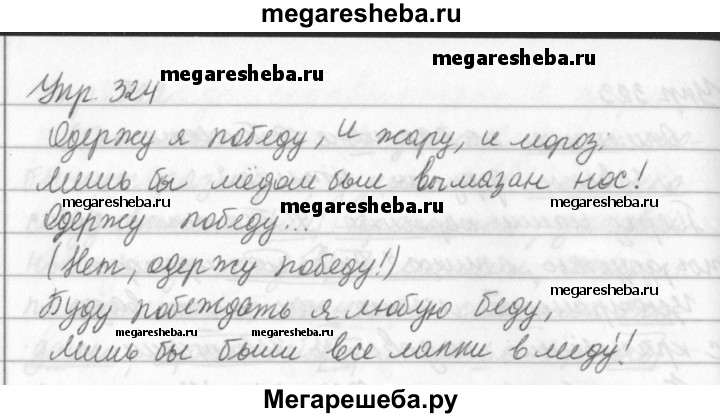 megaresheba.ru
megaresheba.ru
Упр. 324 megaresheba.ru
Одержу я победу, и жару, и мороз,
Лишь бы мёдом был вымазан нос!
Одержу победу... megaresheba.ru
(Нет, одержу победу!)
megaresheba.ru
Буду побеждать я любую беду,
megaresheba.ru megaresheba.ru
Лишь бы были все лапки в меду!
Мегарешеба.ру